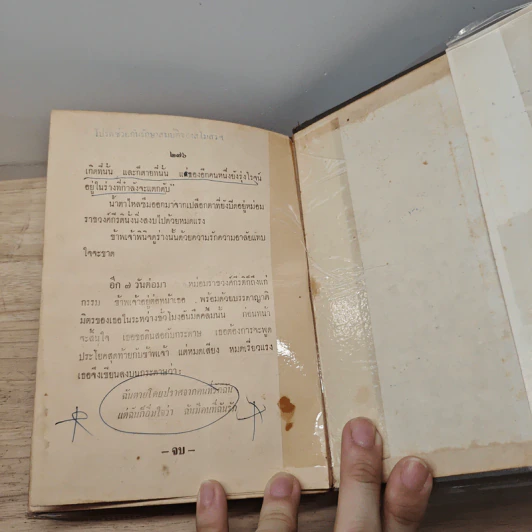 ๒๗๖
เกิดที่นั้น และก็ตายที่นั้น แต่ของอีกคนหนึ่งยังรุ่งโรจน์
อยู่ในร่างที่กำลังจะแตกดับ"
น้ำตาไหลซึมออกมาจากเปลือกตาที่ยังปิดอยู่ หม่อม
ราชวงศ์กีรตินิ่งสงบไปด้วยหมดแรง
ข้าพเจ้าพินิจดูร่างนั้นด้วยความรักความอาลัยแทบ
ใจจะขาด
อีก ๗ วันต่อมา หม่อมราชวงศ์กีรติก็ถึงแก่
กรรม ข้าพเจ้าอยู่ต่อหน้าเธอ พร้อมด้วยบรรดาญาติ
มิตรของเธอในระหว่างชั่วโมงอันมืดคลุ้มนั้น ก่อนหน้า
จะสิ้นใจ เธอขอดินสอกับกระดาษ เธอต้องการจะพูด
ประโยคสุดท้ายกับข้าพเจ้า แต่หมดเสียง หมดเรี่ยวแรง
เธอจึงเขียนลงบนกระดาษว่า:
ฉันตายโดยปราศจากคนที่รักฉัน
แต่ฉันก็อิ่มใจว่า ฉันมีคนที่ฉันรัก
– จบ –